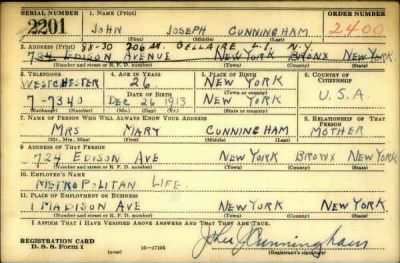 SERIAL NUMBER 1. NAME (Print) ORDER NUMBER
2201 JOHN JOSEPH CUNNINGHAM 2400
(First) (Middle) (Last)
2. ADDRESS (Print) 88-30 206 St. BELLAIRE L.I. N.Y.
724 EDISON AVENUE NEW YORK BRONX NEW YORK
(Number and street or R. F. D. number) (Town) (County) (State)
3. TELEPHONE 4. AGE IN YEARS 5. PLACE OF BIRTH 6. COUNTRY OF CITIZENSHIP
WESTCHESTER 26 NEW YORK
DATE OF BIRTH (Town or county)
7-7340 DEC 26 1913 NEW YORK U.S.A
(Mo.) (Day) (Yr.) (State or country)
7. NAME OF PERSON WHO WILL ALWAYS KNOW YOUR ADDRESS 8. RELATIONSHIP OF THAT PERSON
MRS MARY CUNNINGHAM MOTHER
(Mr., Mrs., Miss) (First) (Middle) (Last)
9. ADDRESS OF THAT PERSON
724 EDISON AVE NEW YORK BRONX NEW YORK
(Number and street or R. F. D. number) (Town) (County) (State)
10. EMPLOYER'S NAME
METROPOLITAN LIFE.
11. PLACE OF EMPLOYMENT OR BUSINESS
1 MADISON AVE NEW YORK NEW YORK
(Number and street or R. F. D. number) (Town) (County) (State)
I AFFIRM THAT I HAVE VERIFIED ABOVE ANSWERS AND THAT THEY ARE TRUE.
REGISTRATION CARD
D. S. S. Form 1 (over) 16—17105 John J Cunningham
(Registrant's signature)